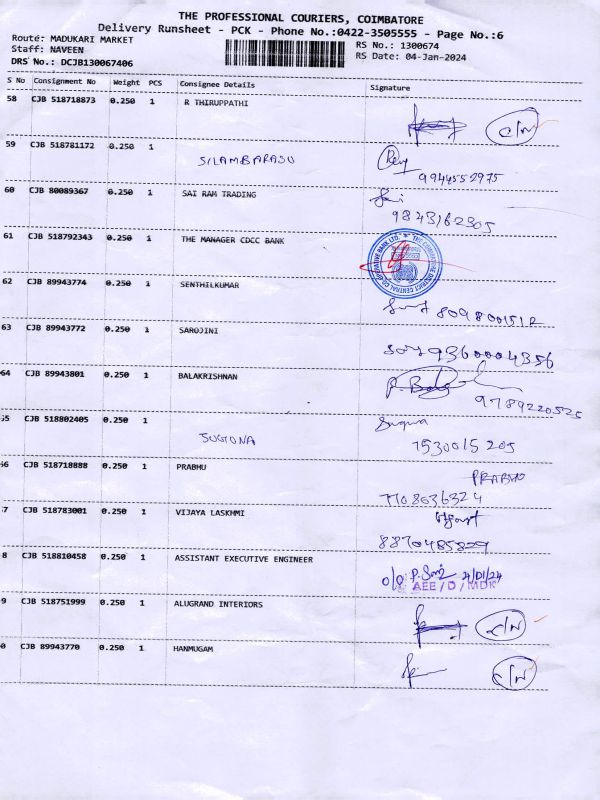 THE PROFESSIONAL COURIERS, COIMBATORE
Delivery Runsheet - PCK - Phone No.:0422-3505555 - Page No.:6
Route: MADUKARI MARKET
RS No.: 1300674
Staff: NAVEEN
RS Date: 04-Jan-2024
DRS No.: DCJB130067406
S No Consignment No Weight PCS Consignee Details Signature
58 CJB 518718873 0.250 1 R THIRUPPATHI C/N
59 CJB 518781172 0.250 1 SILAMBARASU
9944552975
60 CJB 80089367 0.250 1 SAI RAM TRADING
9843162305
61 CJB 518792343 0.250 1 THE MANAGER CDCC BANK
62 CJB 89943774 0.250 1 SENTHILKUMAR
63 CJB 89943772 0.250 1 SAROJINI
9360004356
64 CJB 89943801 0.250 1 BALAKRISHNAN
9789220525
55 CJB 518802405 0.250 1 SUGUNA
Suguna
7530015205
56 CJB 518718888 0.250 1 PRABHU
PRABHU
7708636324
57 CJB 518783001 0.250 1 VIJAYA LASKHMI
8870485829
8 CJB 518810458 0.250 1 ASSISTANT EXECUTIVE ENGINEER
4/01/24
AEE / D / MDK
9 CJB 518751999 0.250 1 ALUGRAND INTERIORS C/N
0 CJB 89943770 0.250 1 HANMUGAM C/N